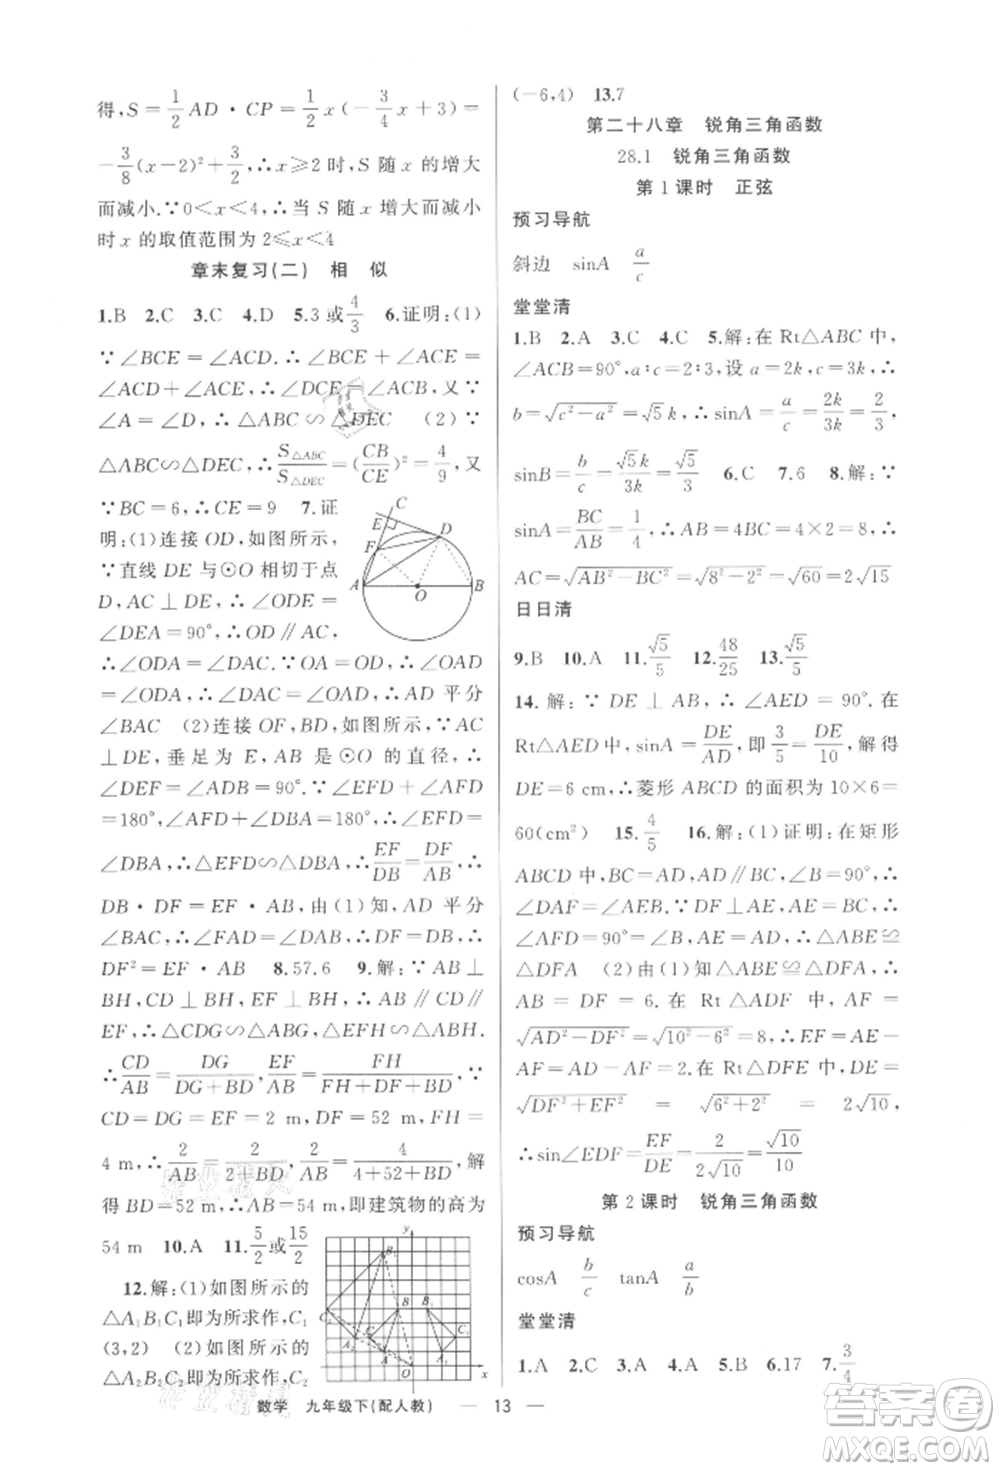 得,S=1/2 AD·CP=1/2 x(-3/4 x+3)=
-3/8(x-2)²+3/2,∴x⩾2 时,S 随 x 的增大
而减小.∵0<x<4,∴当 S 随 x 增大而减小
时 x 的取值范围为 2⩽x<4
章末复习(二) 相 似
1.B 2.C 3.C 4.D 5.3 或 4/3 6.证明:(1)
∵∠BCE=∠ACD.∴∠BCE+∠ACE=
∠ACD+∠ACE,∴∠DCE=∠ACB,又∵
∠A=∠D,∴△ABC∽△DEC (2)∵
△ABC∽△DEC,∴S△ABC/S△DEC=(CB/CE)²=4/9,又
∵BC=6,∴CE=9 7.证
明:(1)连接 OD,如图所示,
∵直线 DE 与⊙O 相切于点
D,AC⊥DE,∴∠ODE=
∠DEA=90°,∴OD∥AC,
∴∠ODA=∠DAC.∵OA=OD,∴∠OAD
=∠ODA,∴∠DAC=∠OAD,∴AD 平分
∠BAC (2)连接 OF,BD,如图所示,∵AC
⊥DE,垂足为 E,AB 是⊙O 的直径,∴
∠DEF=∠ADB=90°.∵∠EFD+∠AFD
=180°,∠AFD+∠DBA=180°,∴∠EFD=
∠DBA,∴△EFD∽△DBA,∴EF/DB=DF/AB,∴
DB·DF=EF·AB,由(1)知,AD 平分
∠BAC,∴∠FAD=∠DAB,∴DF=DB,∴
DF²=EF·AB 8.57.6 9.解:∵AB⊥
BH,CD⊥BH,EF⊥BH,∴AB∥CD∥
EF,∴△CDG∽△ABG,△EFH∽△ABH.
∴CD/AB=DG/(DG+BD),EF/AB=FH/(FH+DF+BD).∵
CD=DG=EF=2 m,DF=52 m,FH=
4 m,∴2/AB=2/(2+BD),2/AB=4/(4+52+BD),解
得 BD=52 m,∴AB=54 m,即建筑物的高为
54 m 10.A 11.5/2 或 15/2
12.解:(1)如图所示的
△A₁B₁C₁即为所求作,C₁
(3,2) (2)如图所示的
△A₂B₂C₂即为所求作,C₂
C
E
D
F
A
O
B
y
B₂
C₂
B₁
B
A₂
A₁
A
C
O
x
(-6,4) 13.7
第二十八章 锐角三角函数
28.1 锐角三角函数
第 1 课时 正弦
预习导航
斜边 sinA a/c
堂堂清
1.B 2.A 3.C 4.C 5.解:在 Rt△ABC 中,
∠ACB=90°,a∶c=2∶3,设 a=2k,c=3k,∴
b=√(c²-a²)=√5 k,∴sinA=a/c=2k/3k=2/3,
sinB=b/c=√5k/3k=√5/3 6.C 7.6 8.解:∵
sinA=BC/AB=1/4,∴AB=4BC=4×2=8,∴
AC=√(AB²-BC²)=√(8²-2²)=√60=2√15
日日清
9.B 10.A 11.√5/5 12.48/25 13.√5/5
14.解:∵DE⊥AB,∴∠AED=90°.在
Rt△AED 中,sinA=DE/AD,即 3/5=DE/10,解得
DE=6 cm,∴菱形 ABCD 的面积为 10×6=
60(cm²) 15.4/5 16.解:(1)证明:在矩形
ABCD 中,BC=AD,AD∥BC,∠B=90°,∴
∠DAF=∠AEB.∵DF⊥AE,AE=BC,∴
∠AFD=90°=∠B,AE=AD,∴△ABE≌
△DFA (2)由(1)知△ABE≌△DFA,∴
AB=DF=6.在 Rt△ADF 中,AF=
√(AD²-DF²)=√(10²-6²)=8,∴EF=AE-
AF=AD-AF=2.在 Rt△DFE 中,DE=
√(DF²+EF²)=√(6²+2²)=2√10,
∴sin∠EDF=EF/DE=2/(2√10)=√10/10
第 2 课时 锐角三角函数
预习导航
cosA b/c tanA a/b
堂堂清
1.A 2.C 3.A 4.A 5.B 6.17 7.3/4
数学 九年级下(配人教) — 13 —
答案圈
MXQE.COM